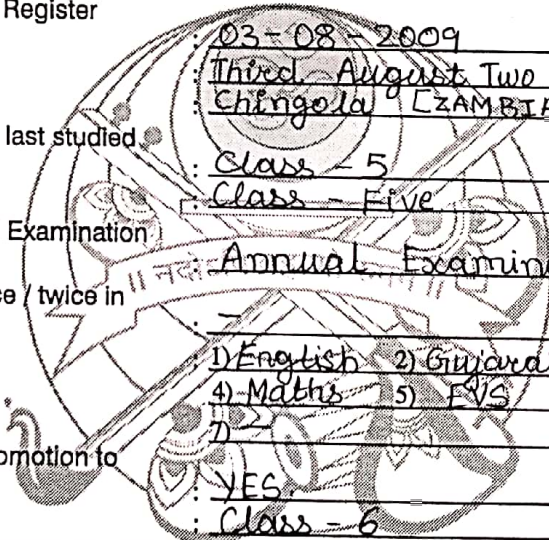 Register
: 03-08-2009
: Third August Two
: Chingola [ZAMBIA
last studied
: Class - 5
: Class - Five
Examination
: Annual Examin
e / twice in
: -
: 1) English 2) Gujara
4) Maths 5) EVS
7) -
omotion to
: YES.
: Class - 6